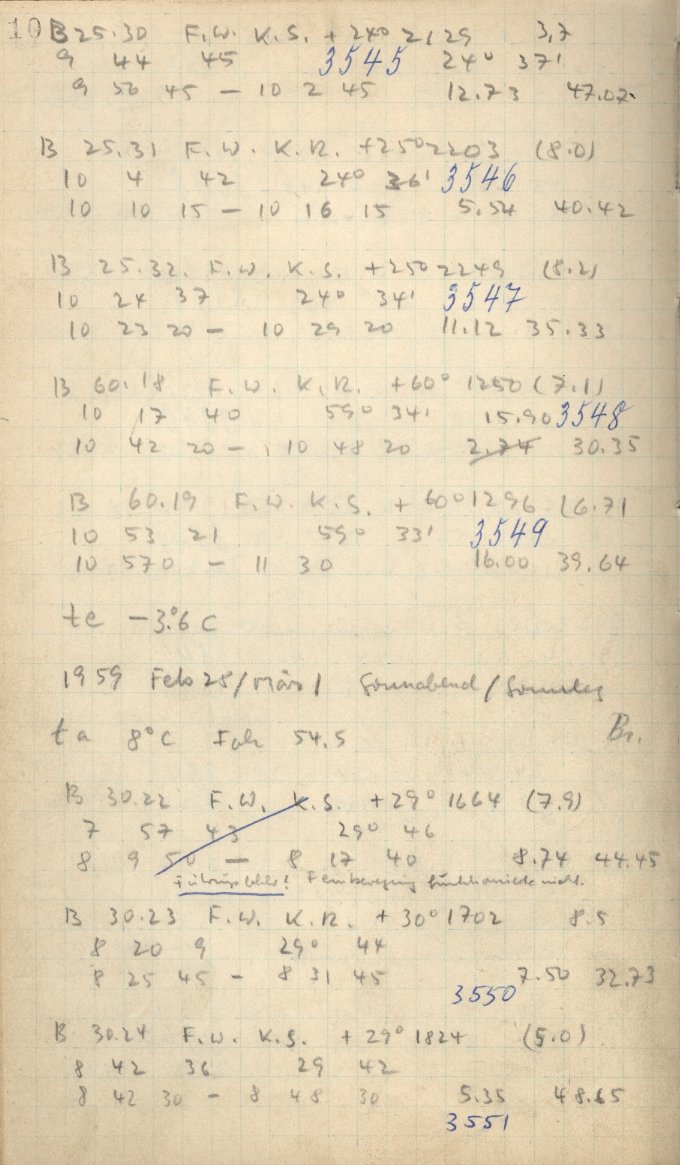 10 B 25.30 F.W. K.S. +24° 2129 3,7
9 44 45 3545 24° 37'
9 56 45 – 10 2 45 12.73 47.07
B 25.31 F.W. K.R. +25° 2203 (8.0)
10 4 42 24° 36' 3546
10 10 15 – 10 16 15 5.54 40.42
B 25.32. F.W. K.S. +25° 2249 (8.2)
10 24 37 24° 34' 3547
10 23 20 – 10 29 20 11.12 35.33
B 60.18 F.W. K.R. +60° 1250 (7.1)
10 17 40 59° 34' 15.90 3548
10 42 20 – 10 48 20 2.74 30.35
B 60.19 F.W. K.S. +60° 1296 (6.7)
10 53 21 59° 33' 3549
10 57 0 – 11 3 0 16.00 39.64
te –3°.6 C
1959 Feb 28/März 1 Sonnabend/Sonntag
ta 8°C Fok 54.5 Br.
B 30.22 F.W. K.S. +29° 1664 (7.9)
7 57 43 29° 46
8 9 50 – 8 17 40 8.74 44.45
Führungsfehler? Feinbewegung funktionierte nicht.
B 30.23 F.W. K.R. +30° 1702 8.5
8 20 9 29° 44
8 25 45 – 8 31 45 7.50 32.73
3550
B 30.24 F.W. K.S. +29° 1824 (5.0)
8 42 36 29 42
8 42 30 – 8 48 30 5.35 48.65
3551